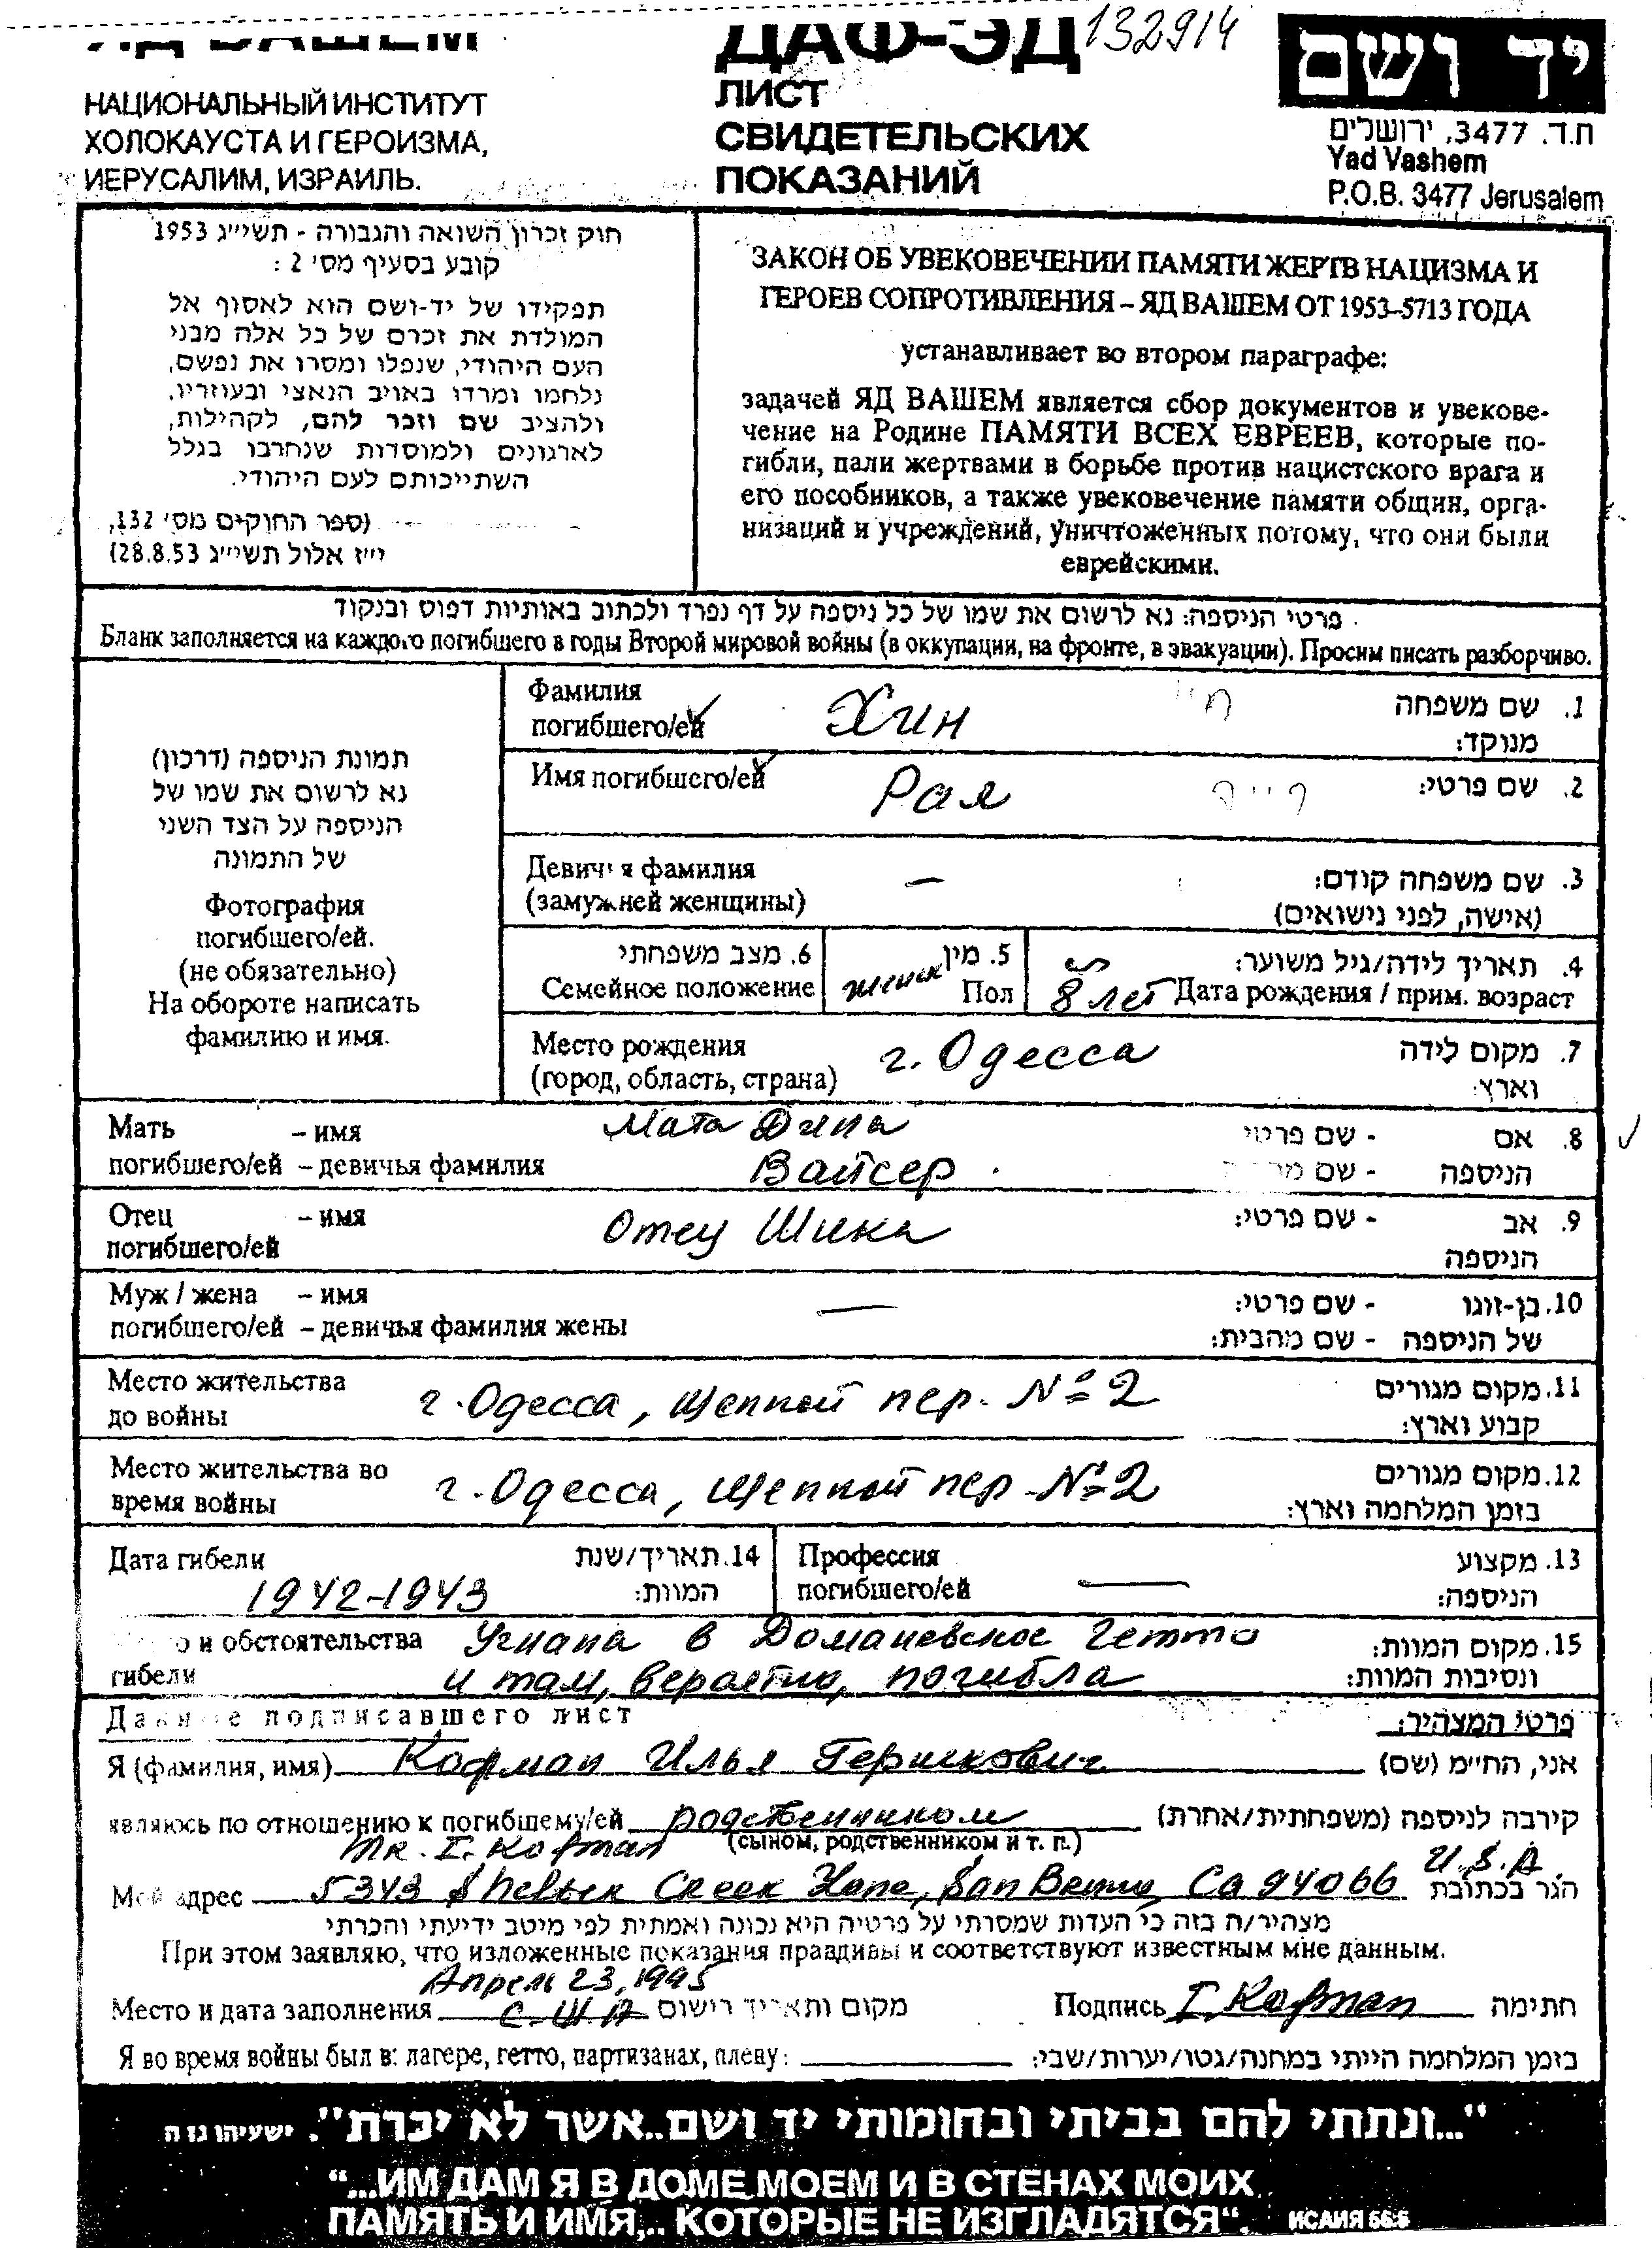 ЯД ВАШЕМ
НАЦИОНАЛЬНЫЙ ИНСТИТУТ
ХОЛОКАУСТА И ГЕРОИЗМА,
ИЕРУСАЛИМ, ИЗРАИЛЬ.
ДАФ-ЭД 132914
ЛИСТ
СВИДЕТЕЛЬСКИХ
ПОКАЗАНИЙ
יד ושם
ת.ד. 3477, ירושלים
Yad Vashem
P.O.B. 3477 Jerusalem
חוק זכרון השואה והגבורה - תשי״ג 1953
קובע בסעיף מס׳ 2 :
תפקידו של יד-ושם הוא לאסוף אל
המולדת את זכרם של כל אלה מבני
העם היהודי, שנפלו ומסרו את נפשם,
נלחמו ומרדו באויב הנאצי ובעוזריו,
ולהציב שם וזכר להם, לקהילות,
לארגונים ולמוסדות שנחרבו בגלל
השתייכותם לעם היהודי.
(ספר החוקים מס׳ 132,
י״ז אלול תשי״ג 28.8.53)
ЗАКОН ОБ УВЕКОВЕЧЕНИИ ПАМЯТИ ЖЕРТВ НАЦИЗМА И
ГЕРОЕВ СОПРОТИВЛЕНИЯ – ЯД ВАШЕМ ОТ 1953–5713 ГОДА
устанавливает во втором параграфе:
задачей ЯД ВАШЕМ является сбор документов и увекове-
чение на Родине ПАМЯТИ ВСЕХ ЕВРЕЕВ, которые по-
гибли, пали жертвами в борьбе против нацистского врага и
его пособников, а также увековечение памяти общин, орга-
низаций и учреждений, уничтоженных потому, что они были
еврейскими.
פרטי הניספה: נא לרשום את שמו של כל ניספה על דף נפרד ולכתוב באותיות דפוס ובנקוד
Бланк заполняется на каждого погибшего в годы Второй мировой войны (в оккупации, на фронте, в эвакуации). Просим писать разборчиво.
תמונת הניספה (דרכון)
נא לרשום את שמו של
הניספה על הצד השני
של התמונה
Фотография
погибшего/ей.
(не обязательно)
На обороте написать
фамилию и имя.
Фамилия
погибшего/ей Хин
1. שם משפחה
מנוקד:
Имя погибшего/ей Рая
2. שם פרטי:
Девичья фамилия
(замужней женщины) –
3. שם משפחה קודם:
(אישה, לפני נישואים)
6. מצב משפחתי
Семейное положение
5. מין
женск Пол
4. תאריך לידה/גיל משוער:
8 лет Дата рождения / прим. возраст
Место рождения
(город, область, страна) г. Одесса
7. מקום לידה
וארץ:
Мать – имя Мать Дина
погибшего/ей – девичья фамилия Вайсер
8. אם - שם פרטי
הניספה - שם
Отец – имя Отец Шика
погибшего/ей
9. אב - שם פרטי:
הניספה
Муж / жена – имя —
погибшего/ей – девичья фамилия жены
10. בן-זוגו - שם פרטי:
של הניספה - שם מהבית:
Место жительства
до войны г. Одесса, Щепной пер. № 2
11. מקום מגורים
קבוע וארץ:
Место жительства во
время войны г. Одесса, Щепной пер № 2
12. מקום מגורים
בזמן המלחמה וארץ:
Дата гибели 14. תאריך/שנת
1942-1943 המוות:
Профессия
погибшего/ей —
13. מקצוע
הניספה:
и обстоятельства Угнана в Доманевское гетто
гибели и там, вероятно, погибла
15. מקום המוות:
ונסיבות המוות:
Данные подписавшего лист פרטי המצהיר:
Я (фамилия, имя) Кофман Илья Гершкович אני, החי״מ (שם)
являюсь по отношению к погибшему/ей родственником קירבה לניספה (משפחתית/אחרת)
(сыном, родственником и т. п.)
Mr. I. Kofman
Мой адрес 5343 Shelter Creek Lane, San Bruno, Ca 94066 U.S.A. הגר בכתובת
מצהיר/ה בזה כי העדות שמסרתי על פרטיה היא נכונה ואמתית לפי מיטב ידיעתי והכרתי
При этом заявляю, что изложенные показания правдивы и соответствуют известным мне данным.
Апрель 23, 1995
Место и дата заполнения С.Ш.А מקום ותאריך רישום Подпись I. Kofman חתימה
Я во время войны был в: лагере, гетто, партизанах, плену: בזמן המלחמה הייתי במחנה/גטו/יערות/שבי:
"...ונתתי להם בביתי ובחומותי יד ושם..אשר לא יכרת". ישעיהו נו ה
"...ИМ ДАМ Я В ДОМЕ МОЕМ И В СТЕНАХ МОИХ
ПАМЯТЬ И ИМЯ,.. КОТОРЫЕ НЕ ИЗГЛАДЯТСЯ". ИСАИЯ 56:5